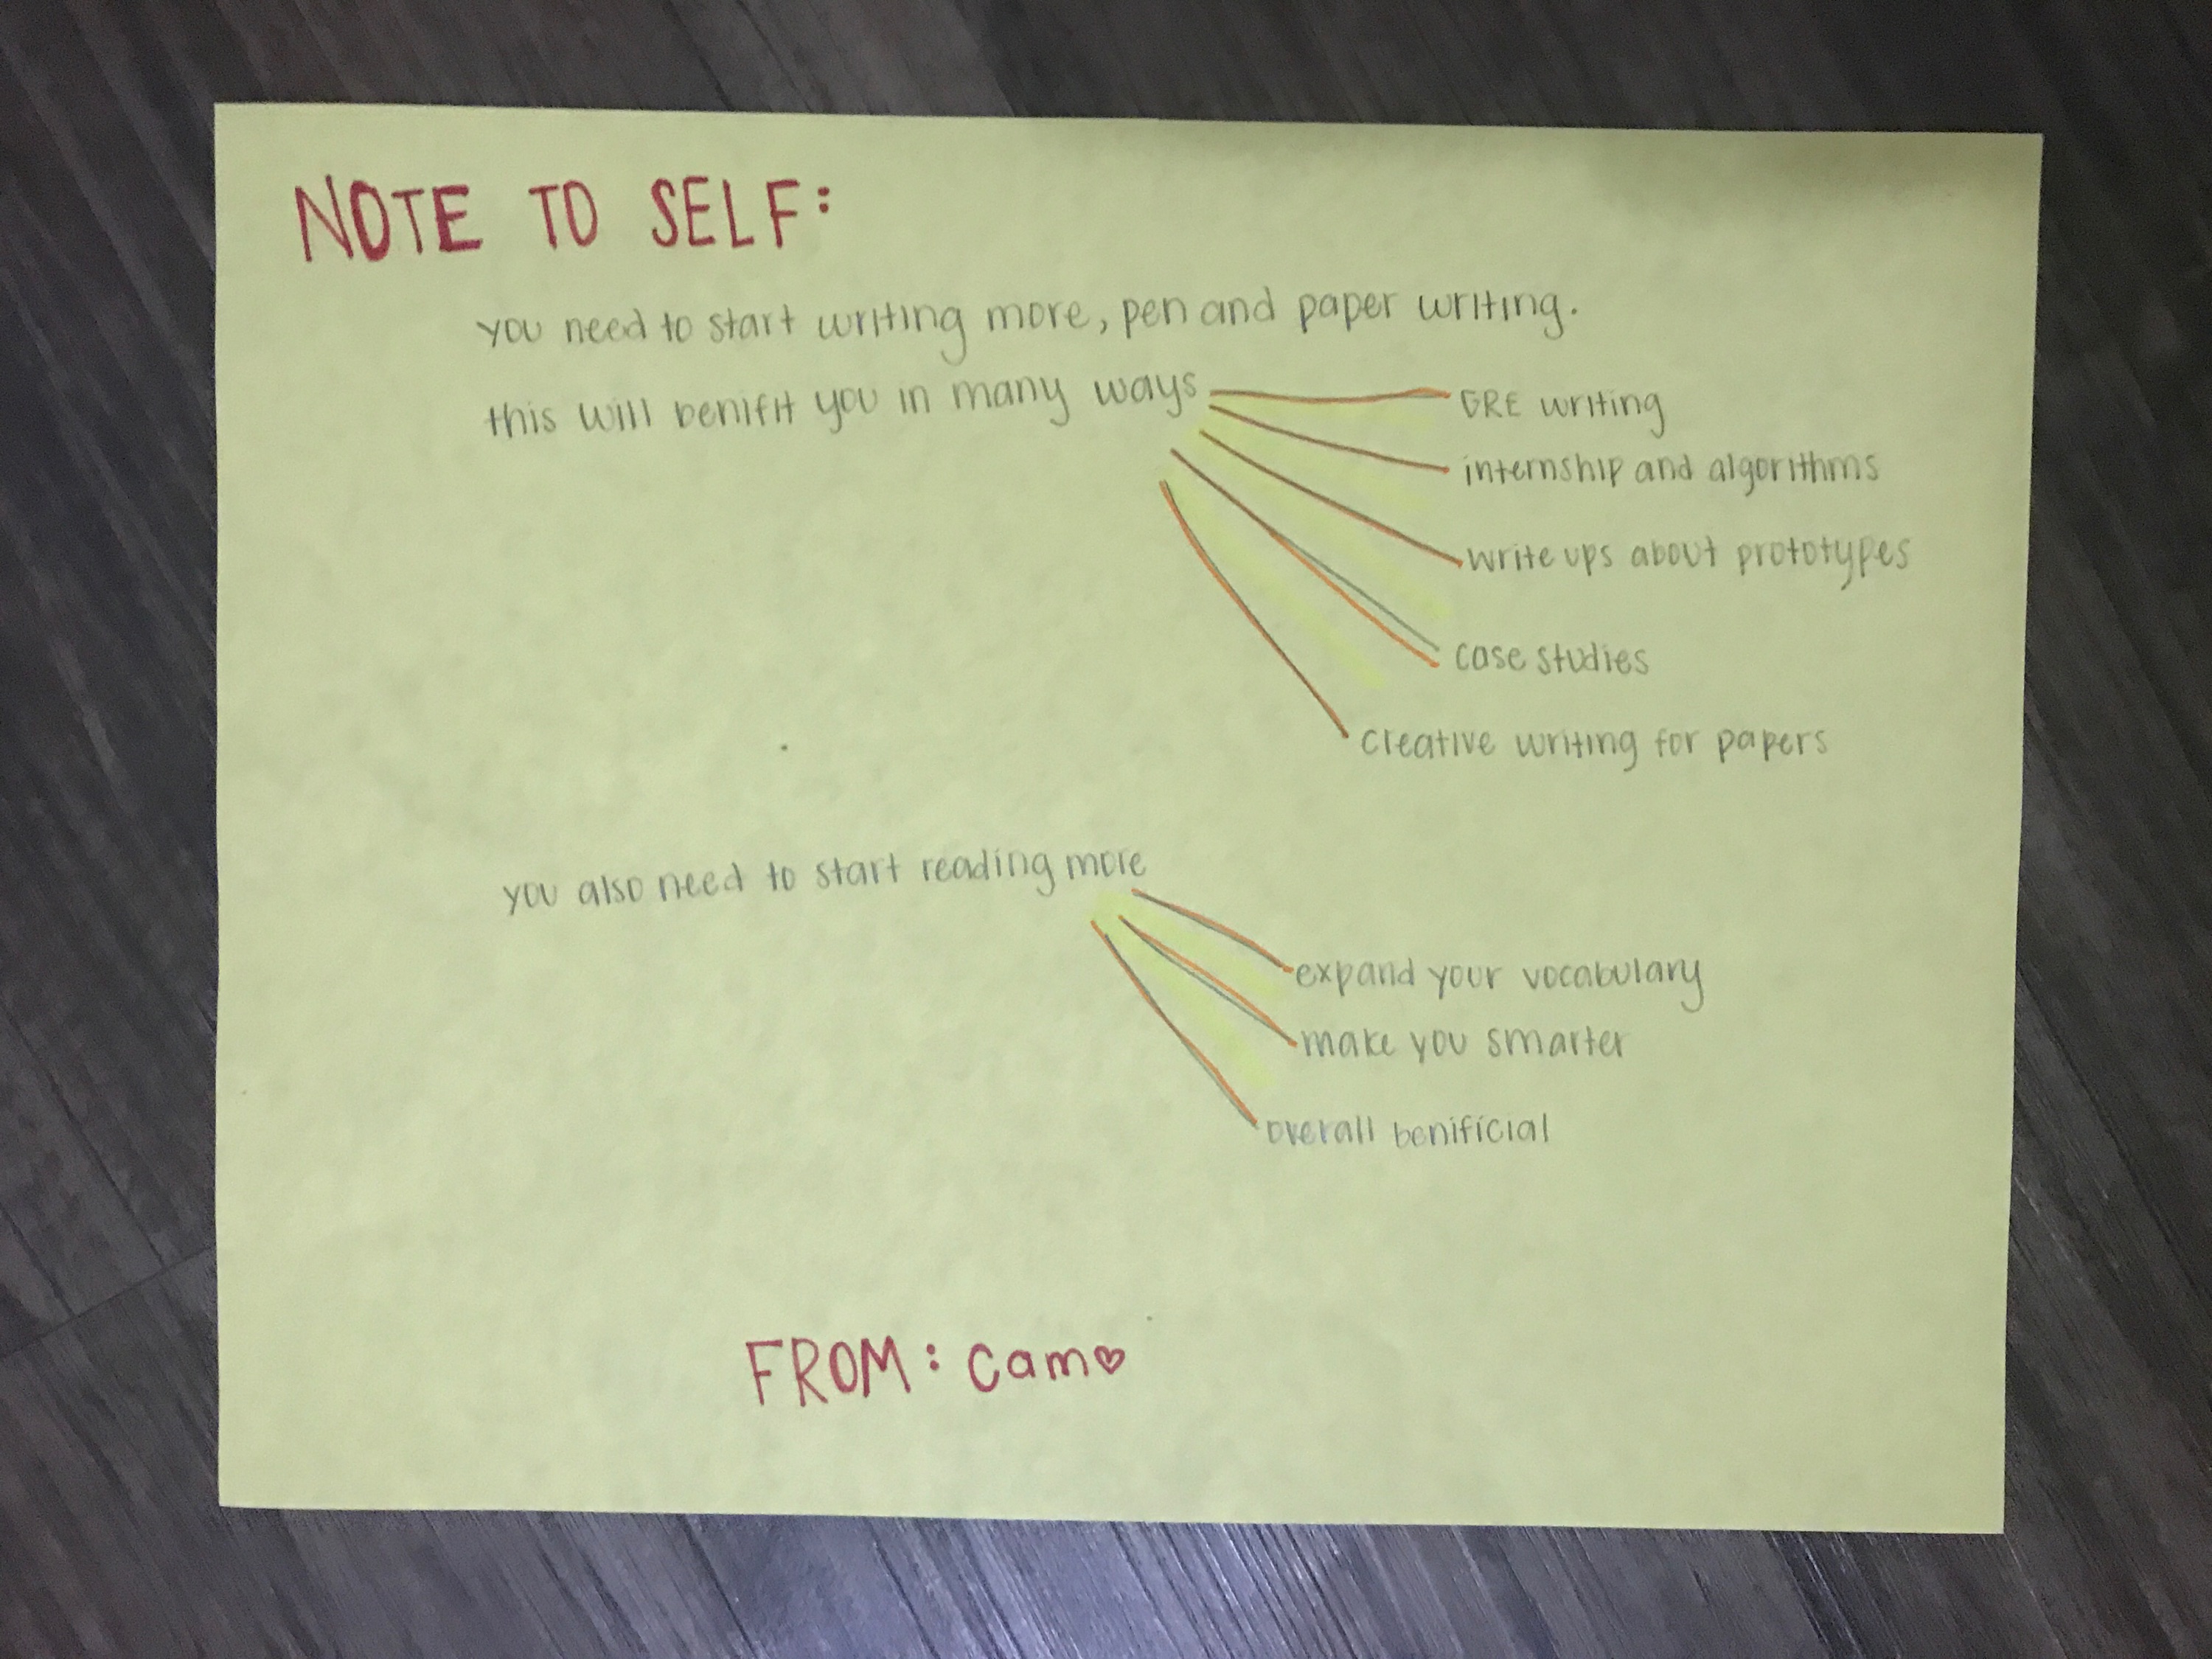 NOTE TO SELF:
you need to start writing more, pen and paper writing.
this will benifit you in many ways
GRE writing
internship and algorithms
write ups about prototypes
case studies
creative writing for papers
you also need to start reading more
expand your vocabulary
make you smarter
overall benificial
FROM: cam♡